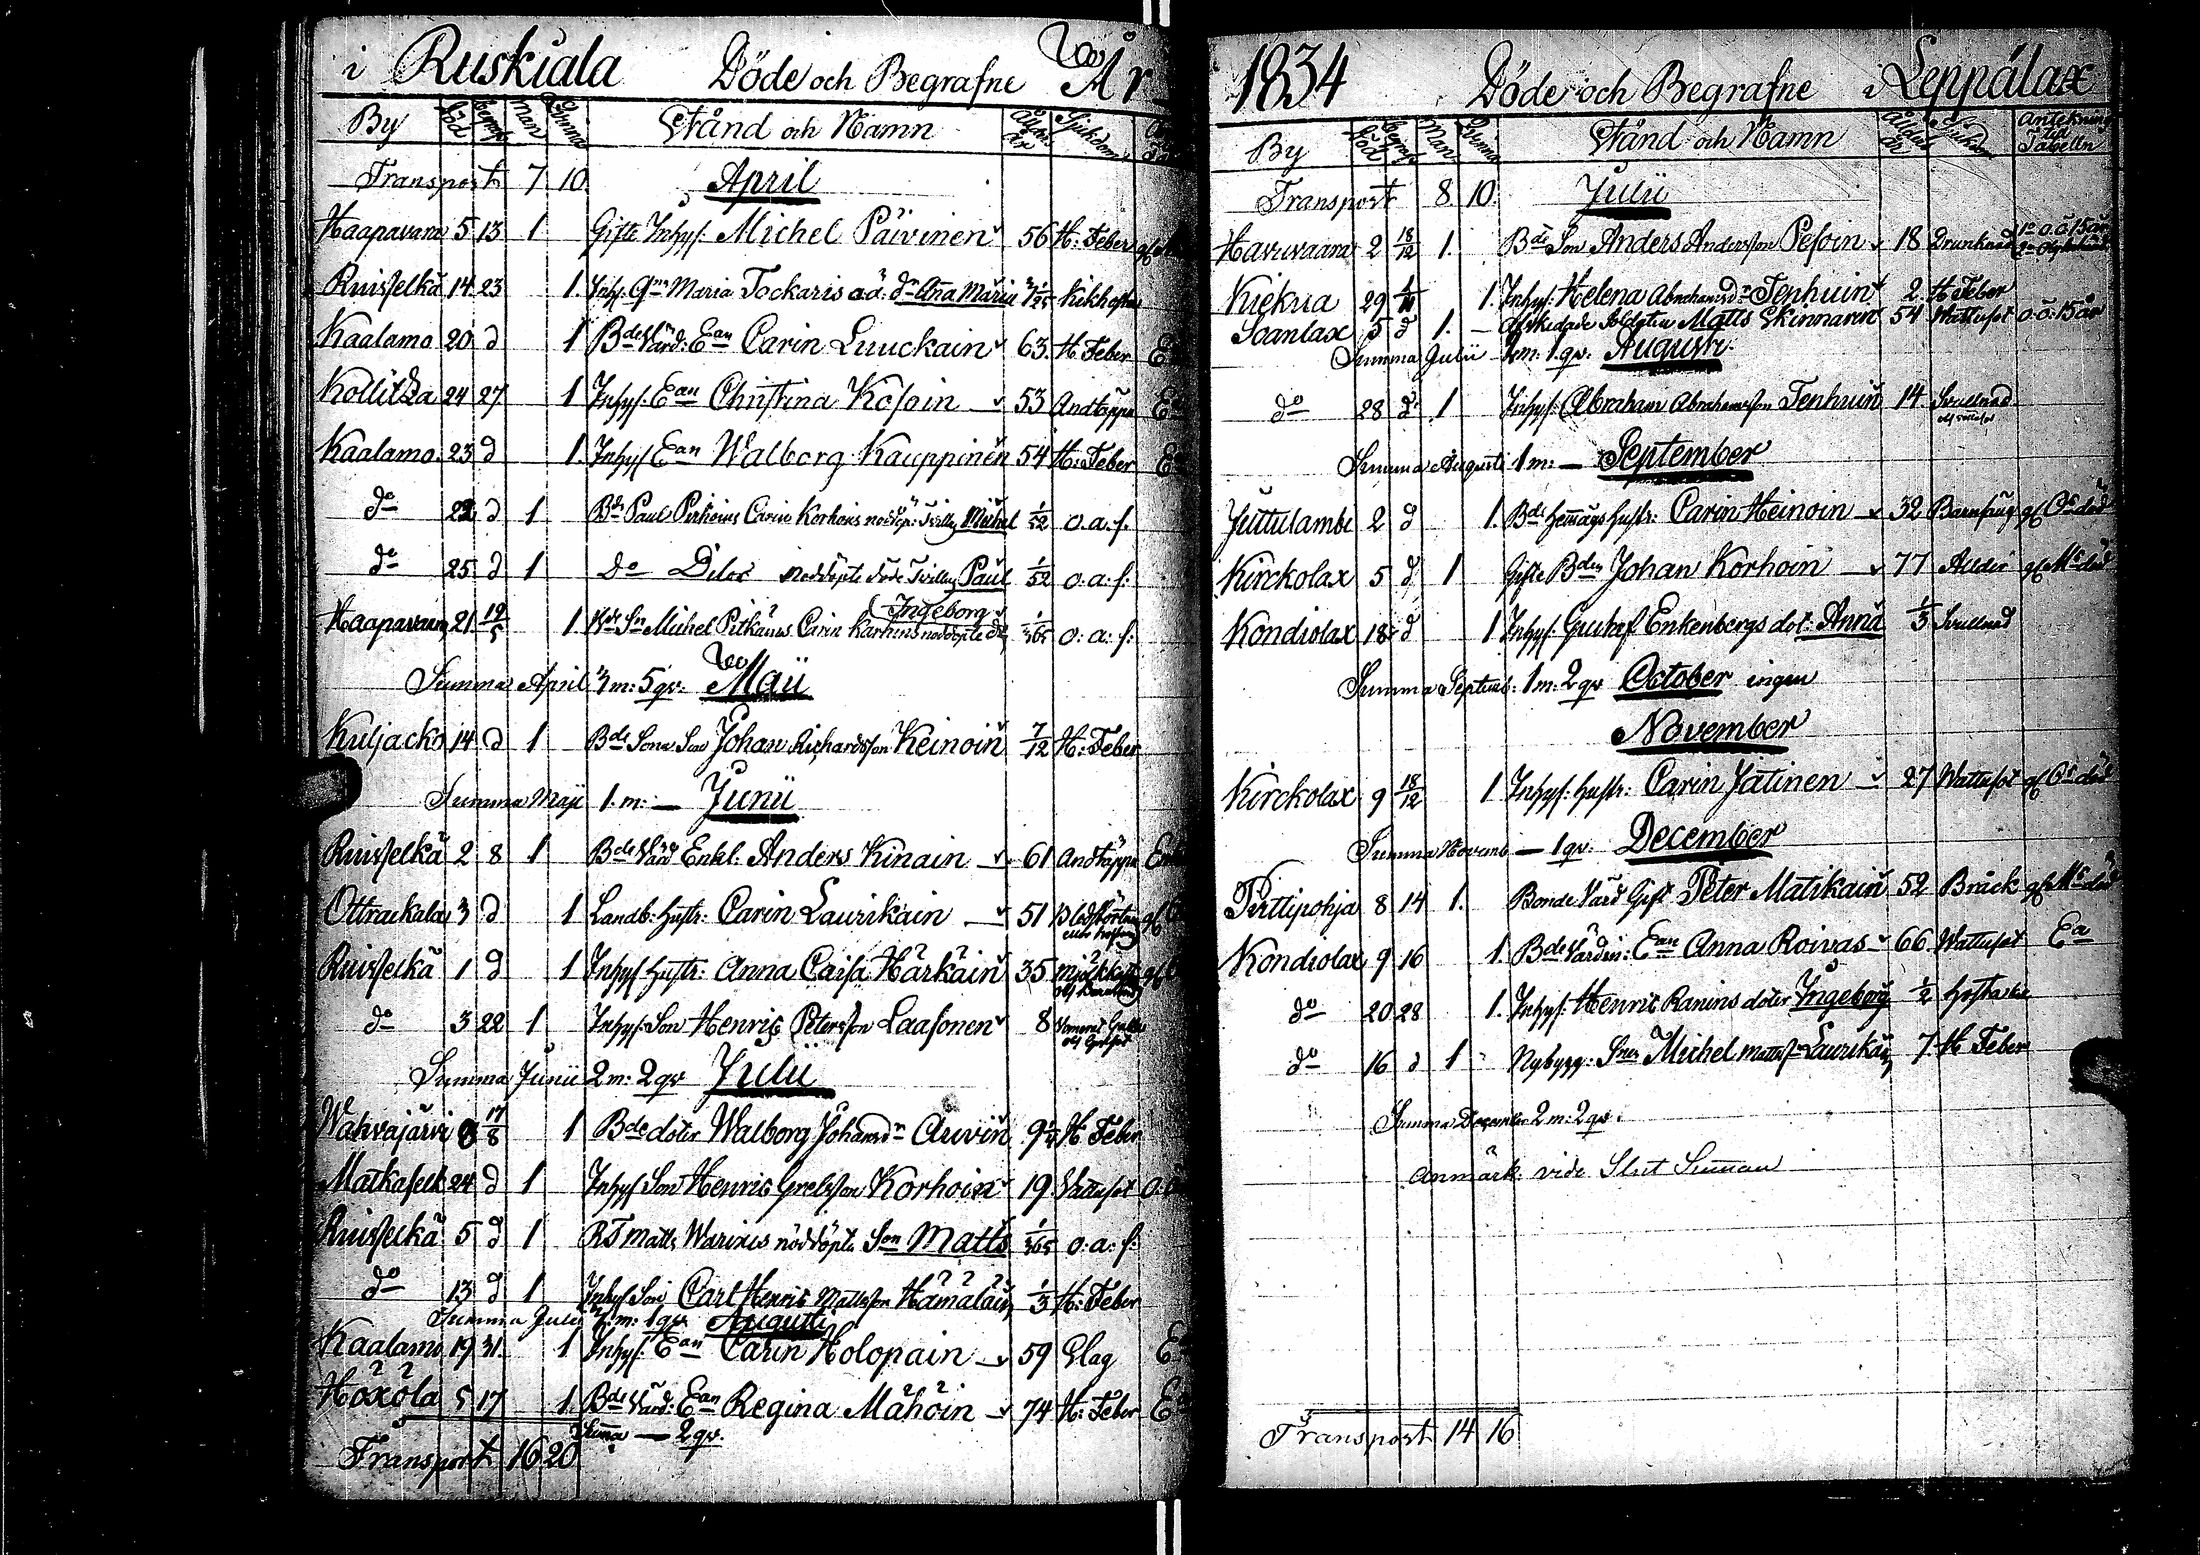 i Ruskiala Döde och Begrafne År
By död begrafn Man Qvinna Stånd och Namn Ålder År Sjukdom
Transport 7 10 April
Haapavara 5 13 1 Gifte Inhys: Michel Päivinen 56 H: Feber
Ruisselkä 14 23 1 Inhys. Maria Tockaris o.ä. dr Anna Maria Kikhosta
Kaalamo 20 d 1 Bde Värd: Ean Carin Luuckain 63 H Feber
Kollitza 24 27 1 Inhys: Ean Christina Kösoin 53 Andtäppa
Kaalamo 23 d 1 Inhys Ean Walborg Kauppinen 54 H: Feber
do 22 d 1 Bdn Paul Carin Korhoins nöddöp: Tvilling Michel 1/52 o.a.s.
do 25 d 1 do Dito nöddöpte Tvilling Paul 1/52 o.a.s:
Ingeborg
Haapavara 21 19/5 1 Michel Pitkänes Carin nöddöpte dr 1/365 o: a: s:
Summa April 3 m: 5 qv: Maii
Kuljacko 14 d 1 Bde Sona Son Johan Richardsson Keinoin 7/12 H: Feber
Summa Maji 1. m: — Junii
Ruisselkä 2 8 1 Bde Värd Enkl. Anders Kinain 61 Andtäppa
Ottrackala 3 d 1 Landb: Hustr: Carin Laurikain 51
Ruisselkä 1 d 1 Inhys Hustr: Anna Caisa Härkäin 35
do 3 22 1 Inhys: Son Henric Petersson Laasonen 8
Summa Junii 2 m: 2 qv Julii
Wahvajärvi 8 17/8 1 Bde doter Walborg Johansdr Auvin H Feber
Matkaselk 24 d 1 Inhys Son Henric Grelsson Korhoin 19 Vattusot
Ruisselkä 5 d 1 Matts Warines nöddöpte Son Matts 1/365 o: a: s:
do 13 d 1 Inhys Son Carl Henric Mattsson Hämäläin 1/3 H: Feber
Summa Julii 3 m: 1 qv Augusti
Kaalamo 19 31 1 Inhys: Ean Carin Holopain 59 Slag
Höxölä 5 17 1 Bde Värd: Ean Regina Mähöin 74 H: Feber
Summa — 2 qv.
Transport 16 20
1834 Döde och Begrafne i Leppälax
By död begrafn Man Qvinna Stånd och Namn Ålder år Sjukdom Antekning till Tabelln
Transport 8 10 Julii
Havuvaara 2 18/12 1 Bde Son Anders Andersson Pesoin 18 Drunknad
Kiekua 29 1 Inhys: Helena Abrahamsdr Tenhuin 2 H Feber
Soanlax 5 d 1 — Afskedade Soldaten Matts Skinnarin 54 Wattusot o.ö: 15 år
Summa Julii 2 m: 1 qv. Augusti
do 28 d 1 Inhys: Abraham Abrahamsson Tenhuin 14 Svullnad
Summa Augusti 1 m: — September
Juttulambi 2 d 1 Bde Hustr: Carin Heinoin 32 Barnsäng
Kirckolax 5 d 1 Gifte Bden Johan Korhoin 77 Ålder
Kondiolax 18 d 1 Inhys: Gustaf Enkenbergs dot: Anna 1/3 Svullnad
Summa Septemb: 1 m: 2 qv October ingen
November
Kirckolax 9 18/12 1 Inhys: Hustr: Carin Jätinen 27 Wattusot
Summa Novemb — 1 qv. December
Pirttipohja 8 14 1 Bonde Värd Gift Peter Matikain 52 Bråck
Kondiolax 9 16 1 Bde Värdin: Ean Anna Roivas 66 Wattusot Ea
do 20 28 1 Inhys: Henric Ranins doter Ingeborg 1/2
do 16 d 1 Nybygg: Michel Mattsson Laurikain 7 H Feber
Summa December 2 m: 2 qv.
Anmärk: vide Slut Summan
Transport 14 16